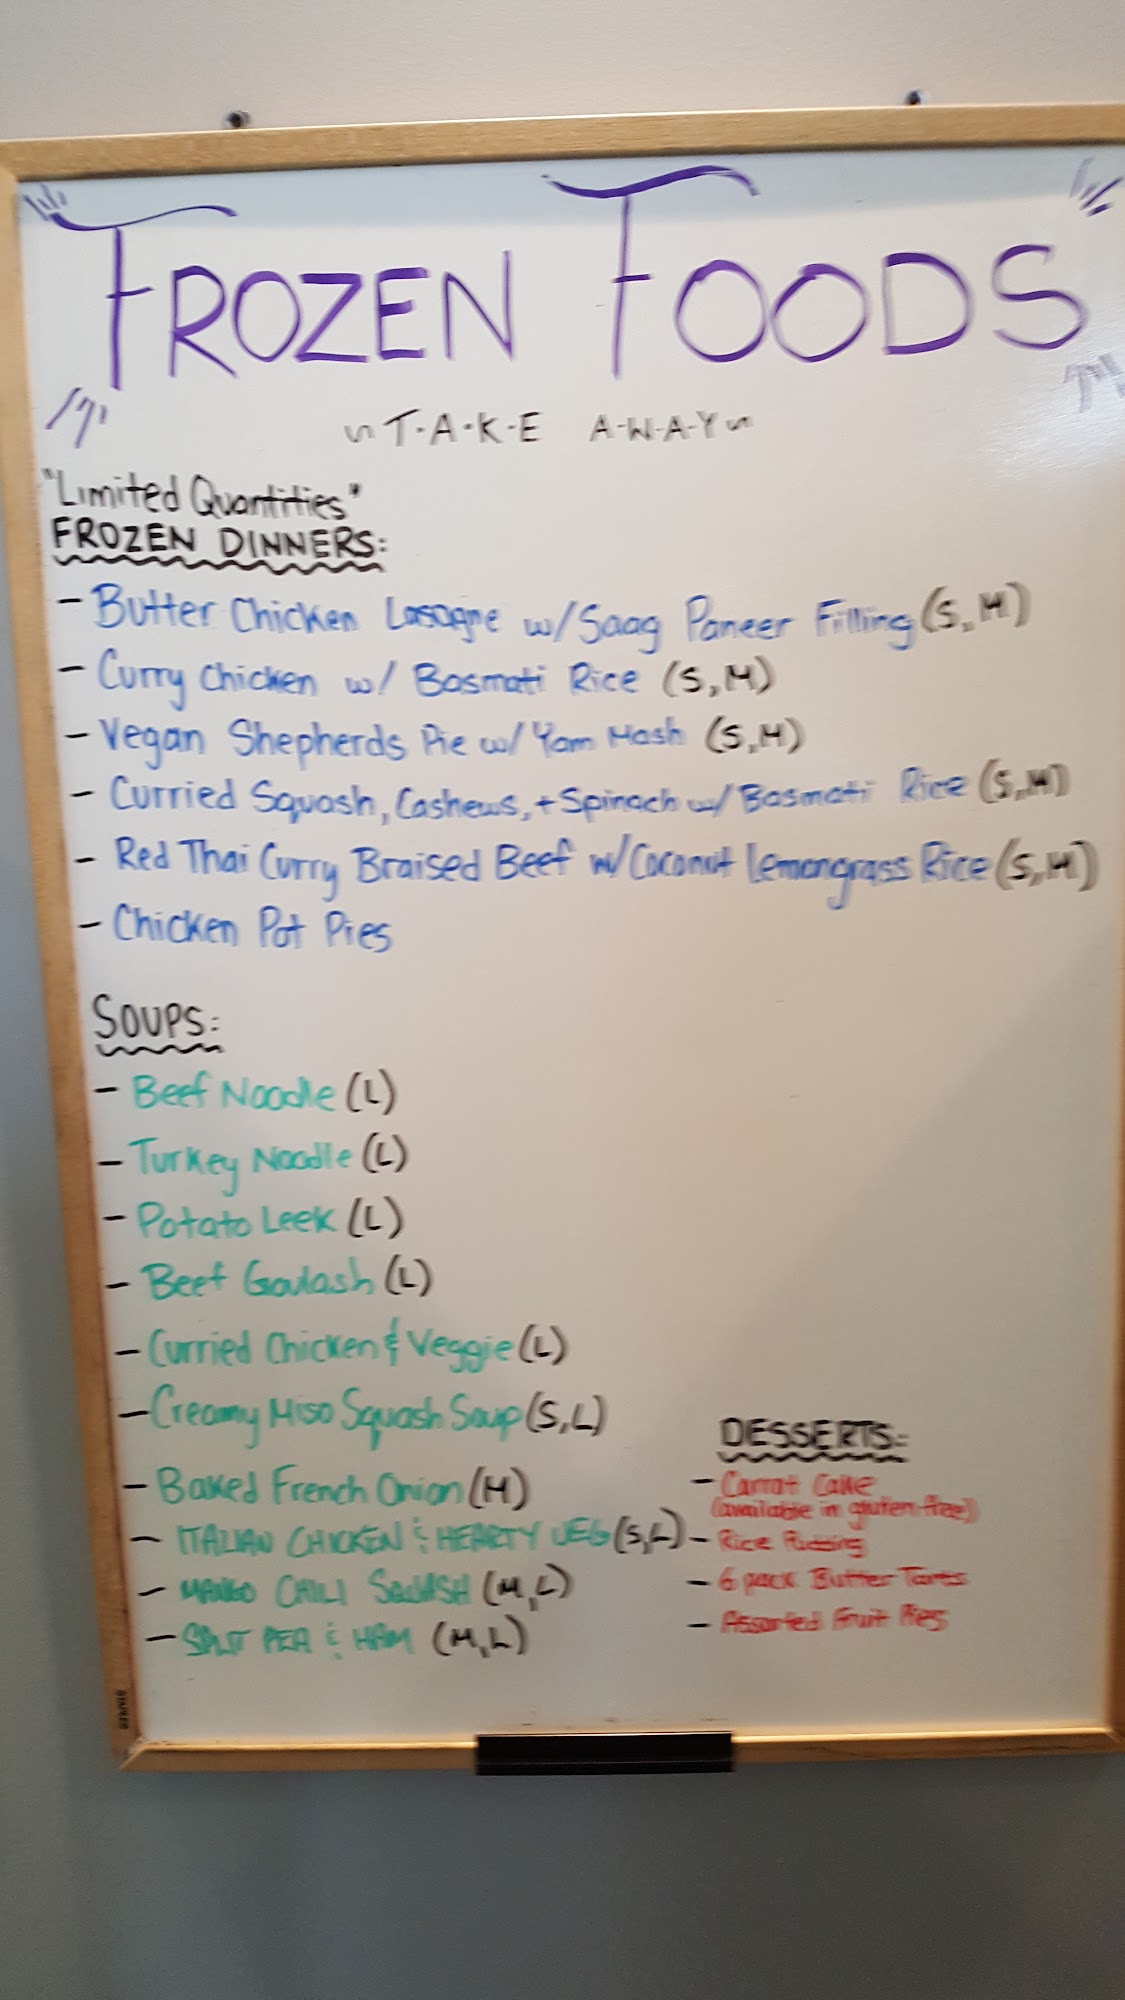 FROZEN FOODS
~T·A·K·E A-W-A-Y~
"Limited Quantities"
FROZEN DINNERS:
- Butter Chicken Lasagne w/Saag Paneer Filling (S, M)
- Curry Chicken w/ Basmati Rice (S, M)
- Vegan Shepherds Pie w/ Yam Mash (S, M)
- Curried Squash, Cashews, + Spinach w/ Basmati Rice (S, M)
- Red Thai Curry Braised Beef w/Coconut Lemongrass Rice (S, M)
- Chicken Pot Pies
SOUPS:
- Beef Noodle (L)
- Turkey Noodle (L)
- Potato Leek (L)
- Beef Goulash (L)
- Curried Chicken & Veggie (L)
- Creamy Miso Squash Soup (S, L)
- Baked French Onion (M)
- ITALIAN CHICKEN & HEARTY VEG (S, L)
- MANGO CHILI SQUASH (M, L)
- SPLIT PEA & HAM (M, L)
DESSERTS:
- Carrot Cake
(available in gluten-free)
- Rice Pudding
- 6 pack Butter Tarts
- Assorted Fruit Pies
STAPLES